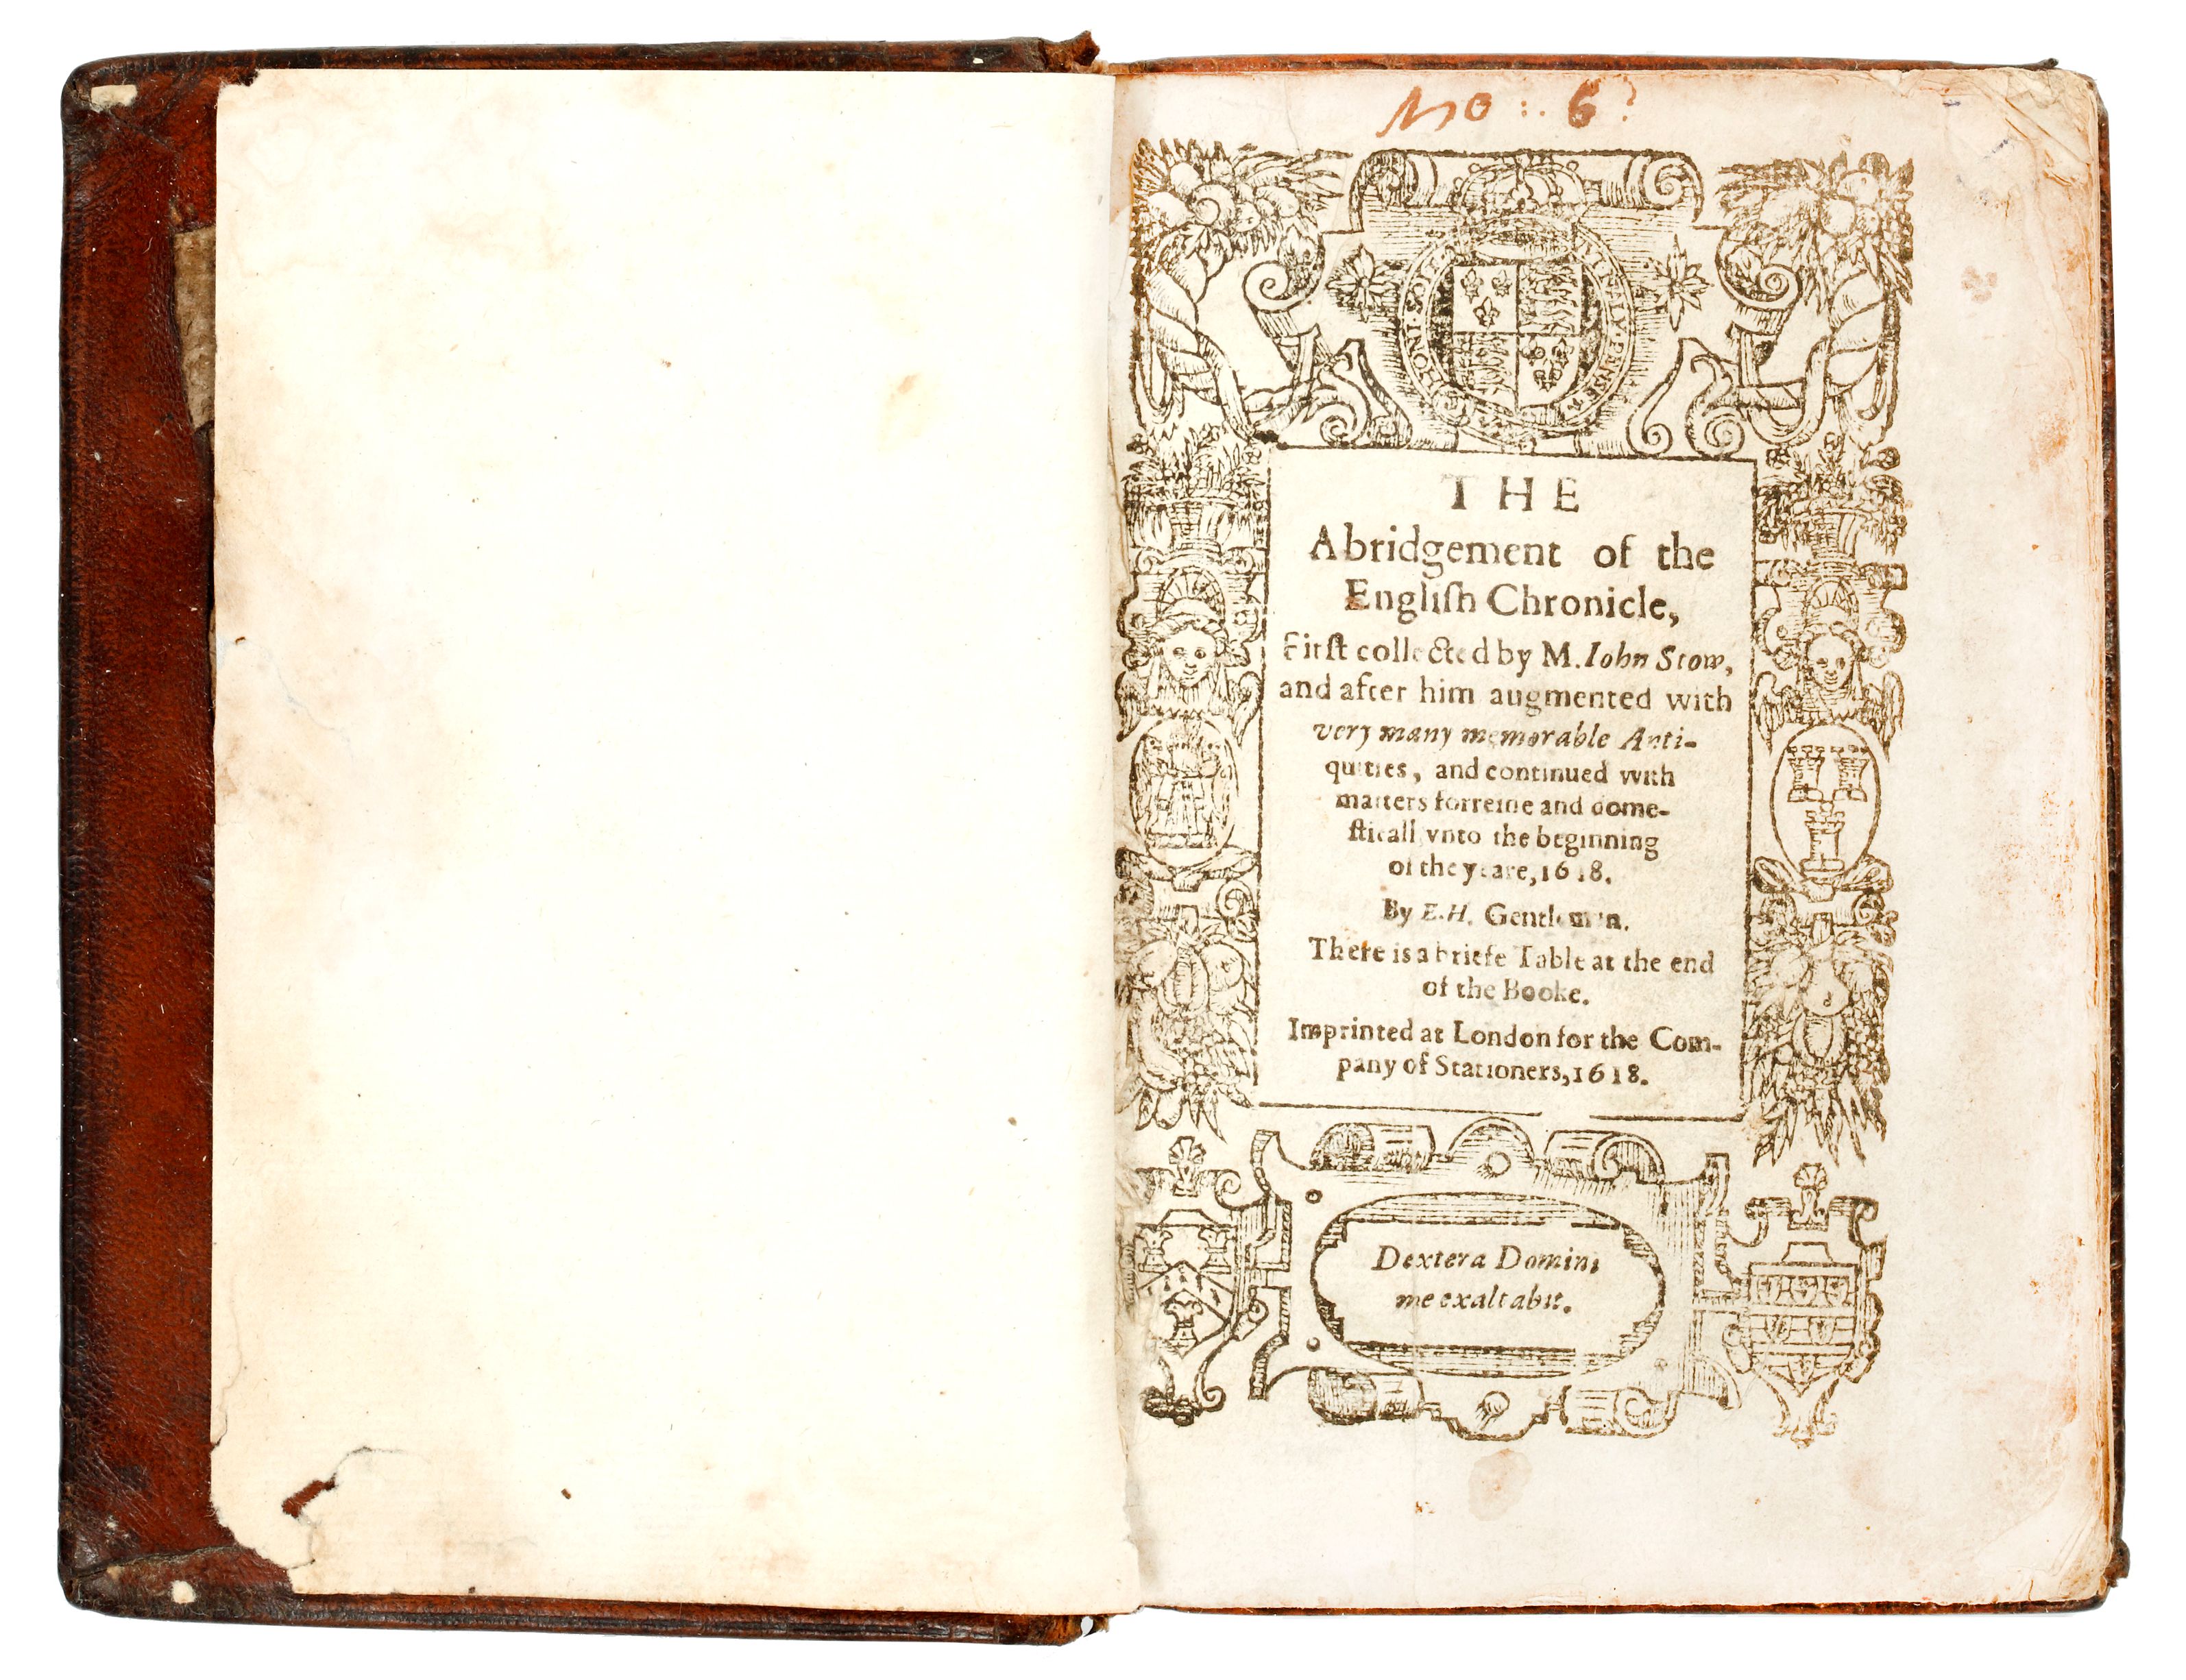 No :. 6
HONI SOIT QVI MAL Y PENSE
THE
Abridgement of the
Engliſh Chronicle,
Firſt collected by M. Iohn Stow,
and after him augmented with
very many memorable Anti-
quities, and continued with
matters forreine and dome-
ſticall, vnto the beginning
of the yeare, 1618.
By E.H. Gentleman.
There is a briefe Table at the end
of the Booke.
Imprinted at London for the Com-
pany of Stationers, 1618.
Dextera Domini
me exaltabit.